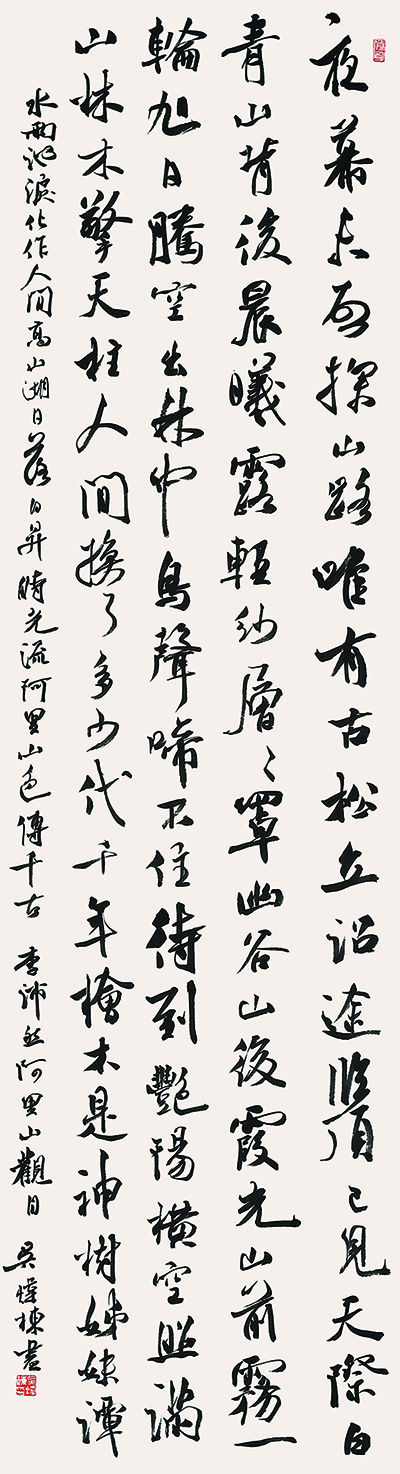 夜幕未啟探山路唯有古松立沿途臨頂已見天際白
青山背後晨曦露輕紗層々罩幽谷山後霞光山前霧一
輪旭日騰空出林中鳥聲啼不住待到艷陽橫空照滿
山林木擎天柱人間換了多少代千年檜木是神樹姊妹潭
水兩泓淚化作人間高山湖日落日昇時光流阿里山色傳千古 李沛 阿里山觀日 吳 棟書